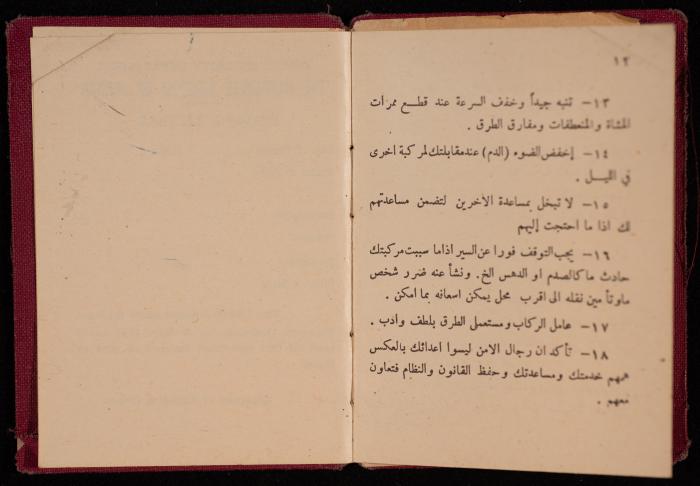 ١٢
١٣- تنبه جيداً وخفف السرعة عند قطع ممرات
المشاة والمنعطفات ومفارق الطرق .
١٤- إخفض الضوء (الدم) عند مقابلتك لمركبة اخرى
في الليل .
١٥- لا تبخل بمساعدة الآخرين لتضمن مساعدتهم
لك اذا ما احتجت إليهم
١٦- يجب التوقف فورا عن السير اذا ما سببت مركبتك
حادث ما كالصدم او الدهس الخ. ونشأ عنه ضرر شخص
ما وتأمين نقله الى اقرب محل يمكن اسعافه بما امكن .
١٧- عامل الركاب ومستعملي الطرق بلطف وادب .
١٨- تأكد ان رجال الامن ليسوا اعدائك بالعكس
همهم خدمتك ومساعدتك وحفظ القانون والنظام فتعاون
معهم .